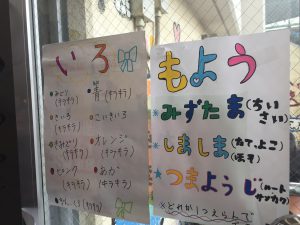 いろ
みどり
(キラキラ)
青(キラキラ)
きいろ
こいきいろ
きみどり
(キラキラ)
オレンジ
(キラキラ)
ピンク
(キラキラ)
あか
(キラキラ)
もよう
みずたま(ちい
さい)
しましま(たて、よこ)
ほそ
つまようじ(ハート
サンカク)
※どれか1つえらんで